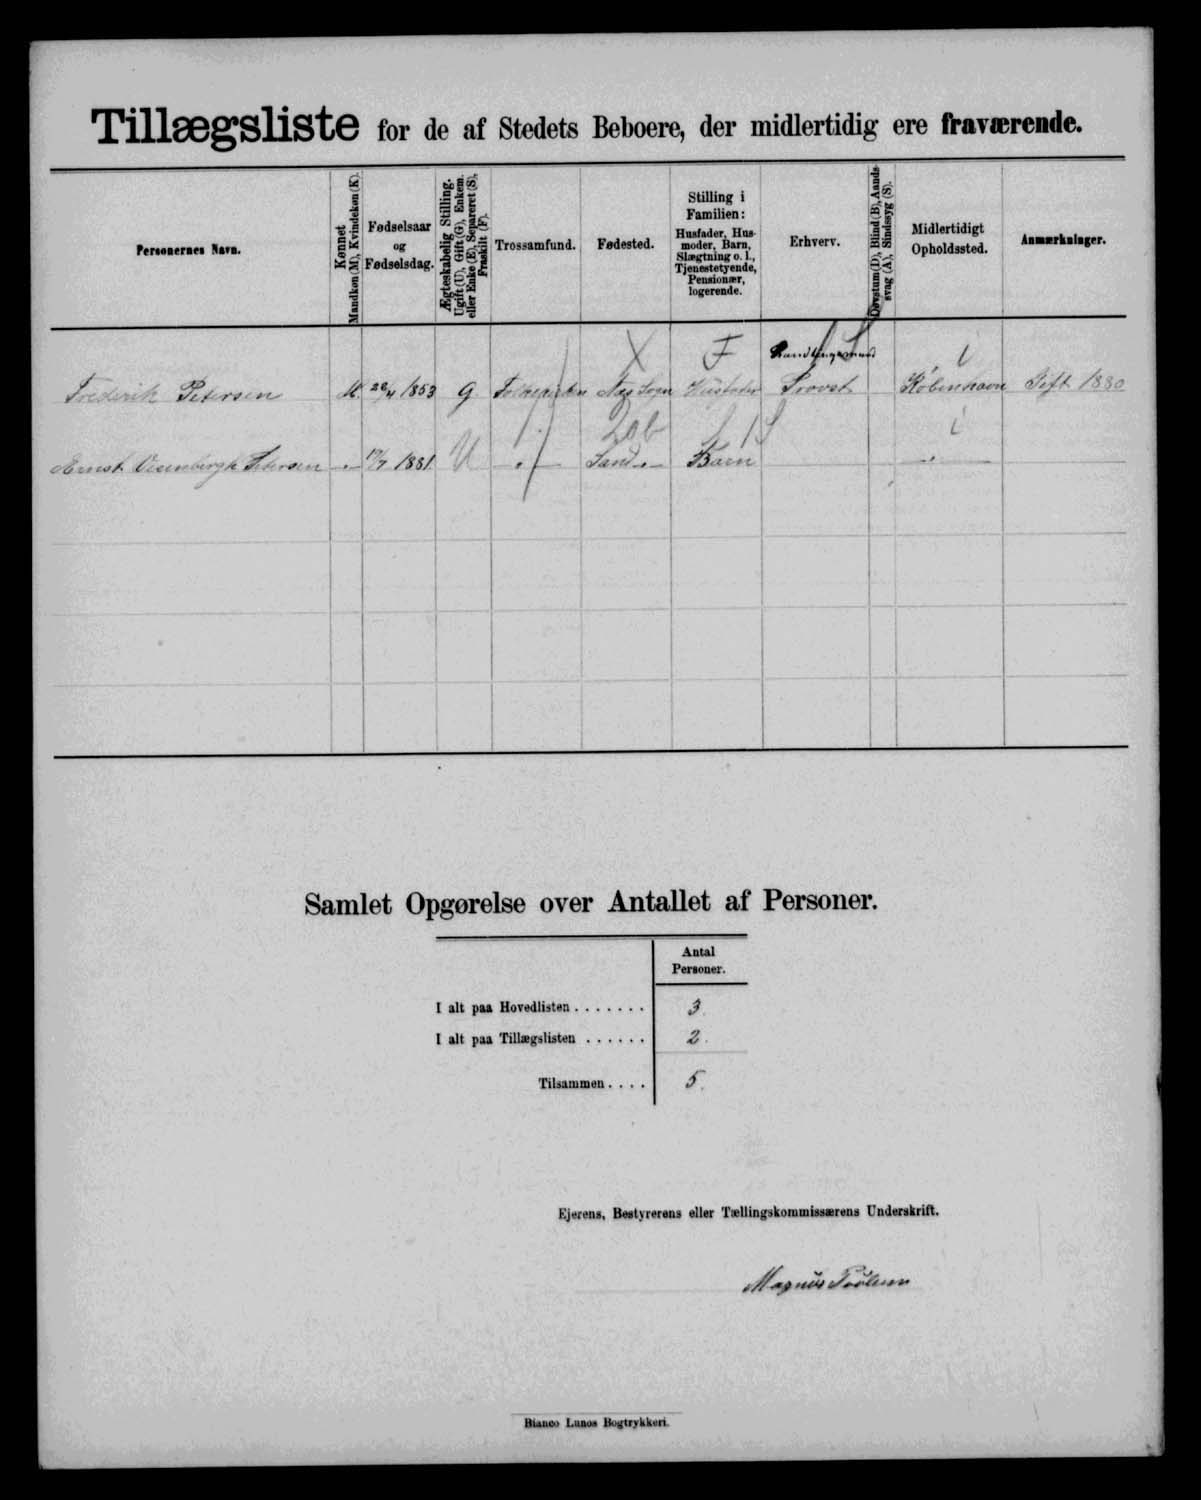 Tillægsliste for de af Stedets Beboere, der midlertidig ere fraværende.
Personernes Navn.
Kønnet
Mandkøn (M), Kvindekøn (K).
Fødselsaar
og
Fødselsdag.
Ægteskabelig Stilling.
Ugift (U), Gift (G), Enkem.
eller Enke (E), Separeret (S),
Fraskilt (F).
Trossamfund.
Fødested.
Stilling i
Familien:
Husfader, Hus-
moder, Barn,
Slægtning o. l.,
Tjenestetyende,
Pensionær,
logerende.
Erhverv.
Døvstum (D), Blind (B), Aands-
svag (A), Sindssyg (S).
Midlertidigt
Opholdssted.
Anmærkninger.
X F i
Frederik Petersen M. 22/4 1853 G. Folkekirken Næs Sogn Husfader Provst København Gift 1880
i
Ernst Petersen 17/7 1881. U Sand Barn
Samlet Opgørelse over Antallet af Personer.
Antal
Personer.
I alt paa Hovedlisten . . . . . . . 3.
I alt paa Tillægslisten . . . . . . 2.
Tilsammen . . . . 5.
Ejerens, Bestyrerens eller Tællingskommissærens Underskrift.
Magnus
Bianco Lunos Bogtrykkeri.